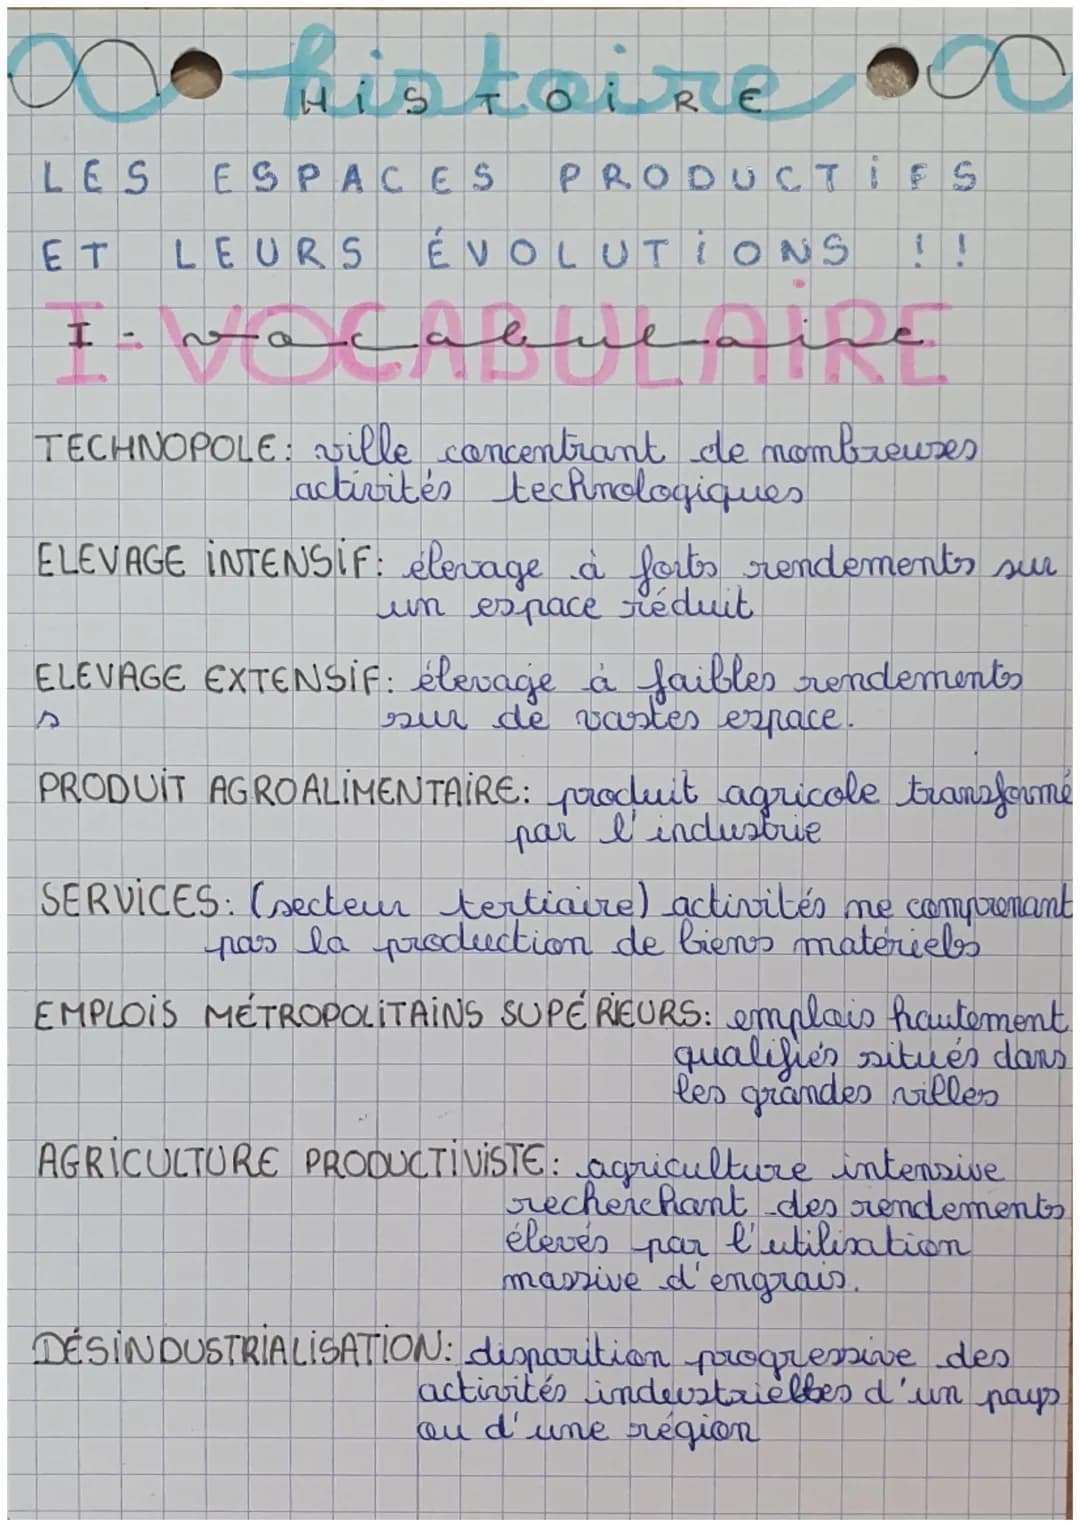 histoire
HISTOIRE
LES ESPACES PRODUCTIFS
ET LEURS ÉVOLUTIONS !!
I - VOCABULAIRE
vocabulaire
TECHNOPOLE: ville concentrant de nombreuses
activités technologiques
ELEVAGE INTENSIF: élevage à forts rendements sur
un espace réduit
ELEVAGE EXTENSIF: élevage à faibles rendements
s sur de vastes espace.
PRODUIT AGROALIMENTAIRE: produit agricole transformé
par l'industrie
SERVICES: (secteur tertiaire) activités ne comprenant
pas la production de biens matériels
EMPLOIS MÉTROPOLITAINS SUPÉRIEURS: emplois hautement
qualifiés situés dans
les grandes villes
AGRICULTURE PRODUCTIVISTE: agriculture intensive
recherchant des rendements
élevés par l'utilisation
massive d'engrais.
DÉSINDUSTRIALISATION: disparition progressive des
activités industrielles d'un pays
ou d'une région